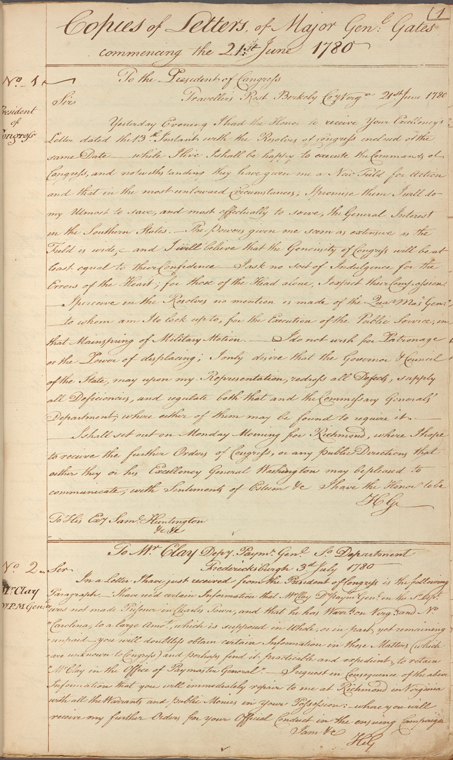 1
Copies of Letters, of Major Genl. Gates
commencing the 21st. June 1780
No. 1.
President
of
Congress
To the President of Congress
Sir Travellers Rest Berkely Cty Virga. 21st June 1780
Yesterday Evening I had the Honor to receive Your Excellency's
Letter dated the 13th. Instant with the Resolves of Congress inclosed of the
same Date — while I live I shall be happy to execute the Commands of
Congress, and notwithstanding they have given me a New Field for Action
and that in the most unlooked Circumstances, I promise them I will do
my Utmost to save, and most effectually to serve, the General Interest
in the Southern States. — The Powers given me seem as extensive as the
Field is wide, — and I will believe that the Generosity of Congress will be at
least equal to their Confidence — I ask no sort of Indulgence for the
Errors of the Heart, for those of the Head alone, I expect their Compassion
I perceive in the Resolves no mention is made of the Quar. Mas. Genl.
to whom am I to look up to, for the Execution of the Public Service, in
that Mainspring of Military Motion. — I do not wish for Patronage
or the Power of displacing; I only desire that the Governor & Council
of the State, may upon my Representation, redress all Defects, supply
all Deficiencies, and regulate both that and the Commissary Generals
Department, where either of them may be found to require it. —
I shall set out on Monday Morning for Richmond, where I hope
to receive the further Orders of Congress, or any public Directions that
either they or his Excellency General Washington may be pleased to
communicate, with Sentiments of Esteem &c I have the Honor to be
HG
To His Exy Saml. Huntington
&c &c
No 2.
Mr Clay
D P. M Genl
To Mr Clay Depy. Paymr. Genl. So Department
Sir Fredericksburgh 3d July 1780
In a Letter I have just received from the President of Congress is the following
Paragraph — "I have certain Information that Mr Clay D Paymr Genl in the So Dept
was not made Prisoner in Charles Town, and that he has Warrts on Virga and No
Carolina, to a large Amt, which is supposed in whole, or in part, yet remaining
unpaid — you will doubtless obtain certain Information in these Matters (which
are unknown to Congress) and perhaps find it practicable and expedient, to retain
Mr Clay in the Office of Paymaster General." — I request in Consequence of the above
Information that you will immediately repair to me at Richmond in Virginia
with all the Warrants and public Monies in your Possession: where you will
receive my further Orders for your Official Conduct in the ensuing Campaign
I am &c
HG